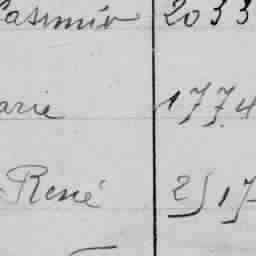 Casimir 2033
arie 1774
René 2517